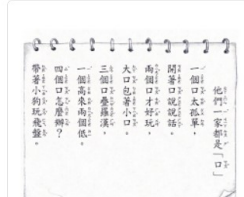 他們一家都是「口」
一個口太孤單，
開著口說說話。
兩個口才好玩，
大口包著小口。
三個口疊羅漢，
一個高來兩個低。
四個口怎麼辦？
帶著小狗玩飛盤。